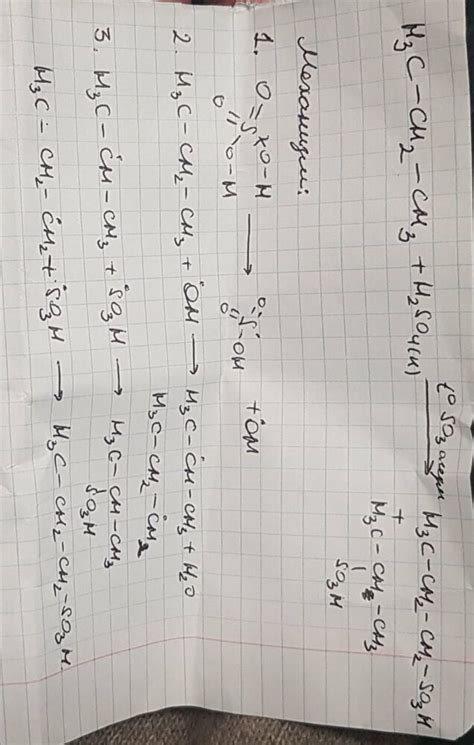 H₃C – CH₂ – CH₃ + H₂SO₄(к) —t° SO₃ олеум→ H₃C–CH₂–CH₂–SO₃H
+
H₃C–CH–CH₃
SO₃H
Механизм:
1. O=S×O–H → O=S–OH + ȮH
O O–H O
2. H₃C–CH₂–CH₃ + ȮH → H₃C–ĊH–CH₃ + H₂O
H₃C–CH₂–ĊH₂
3. H₃C–ĊH–CH₃ + ṠO₃H → H₃C–CH–CH₃
SO₃H
H₃C – CH₂ – ĊH₂ + ṠO₃H → H₃C–CH₂–CH₂–SO₃H